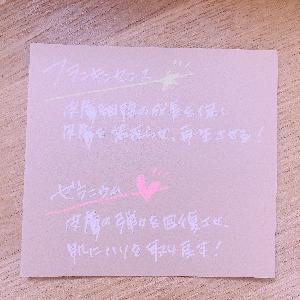 フランキンセンス
皮膚細胞の成長を促し
皮膚を 、再生させる!
ゼラニウム
皮膚の弾力を回復させ、
肌にハリを 再生!